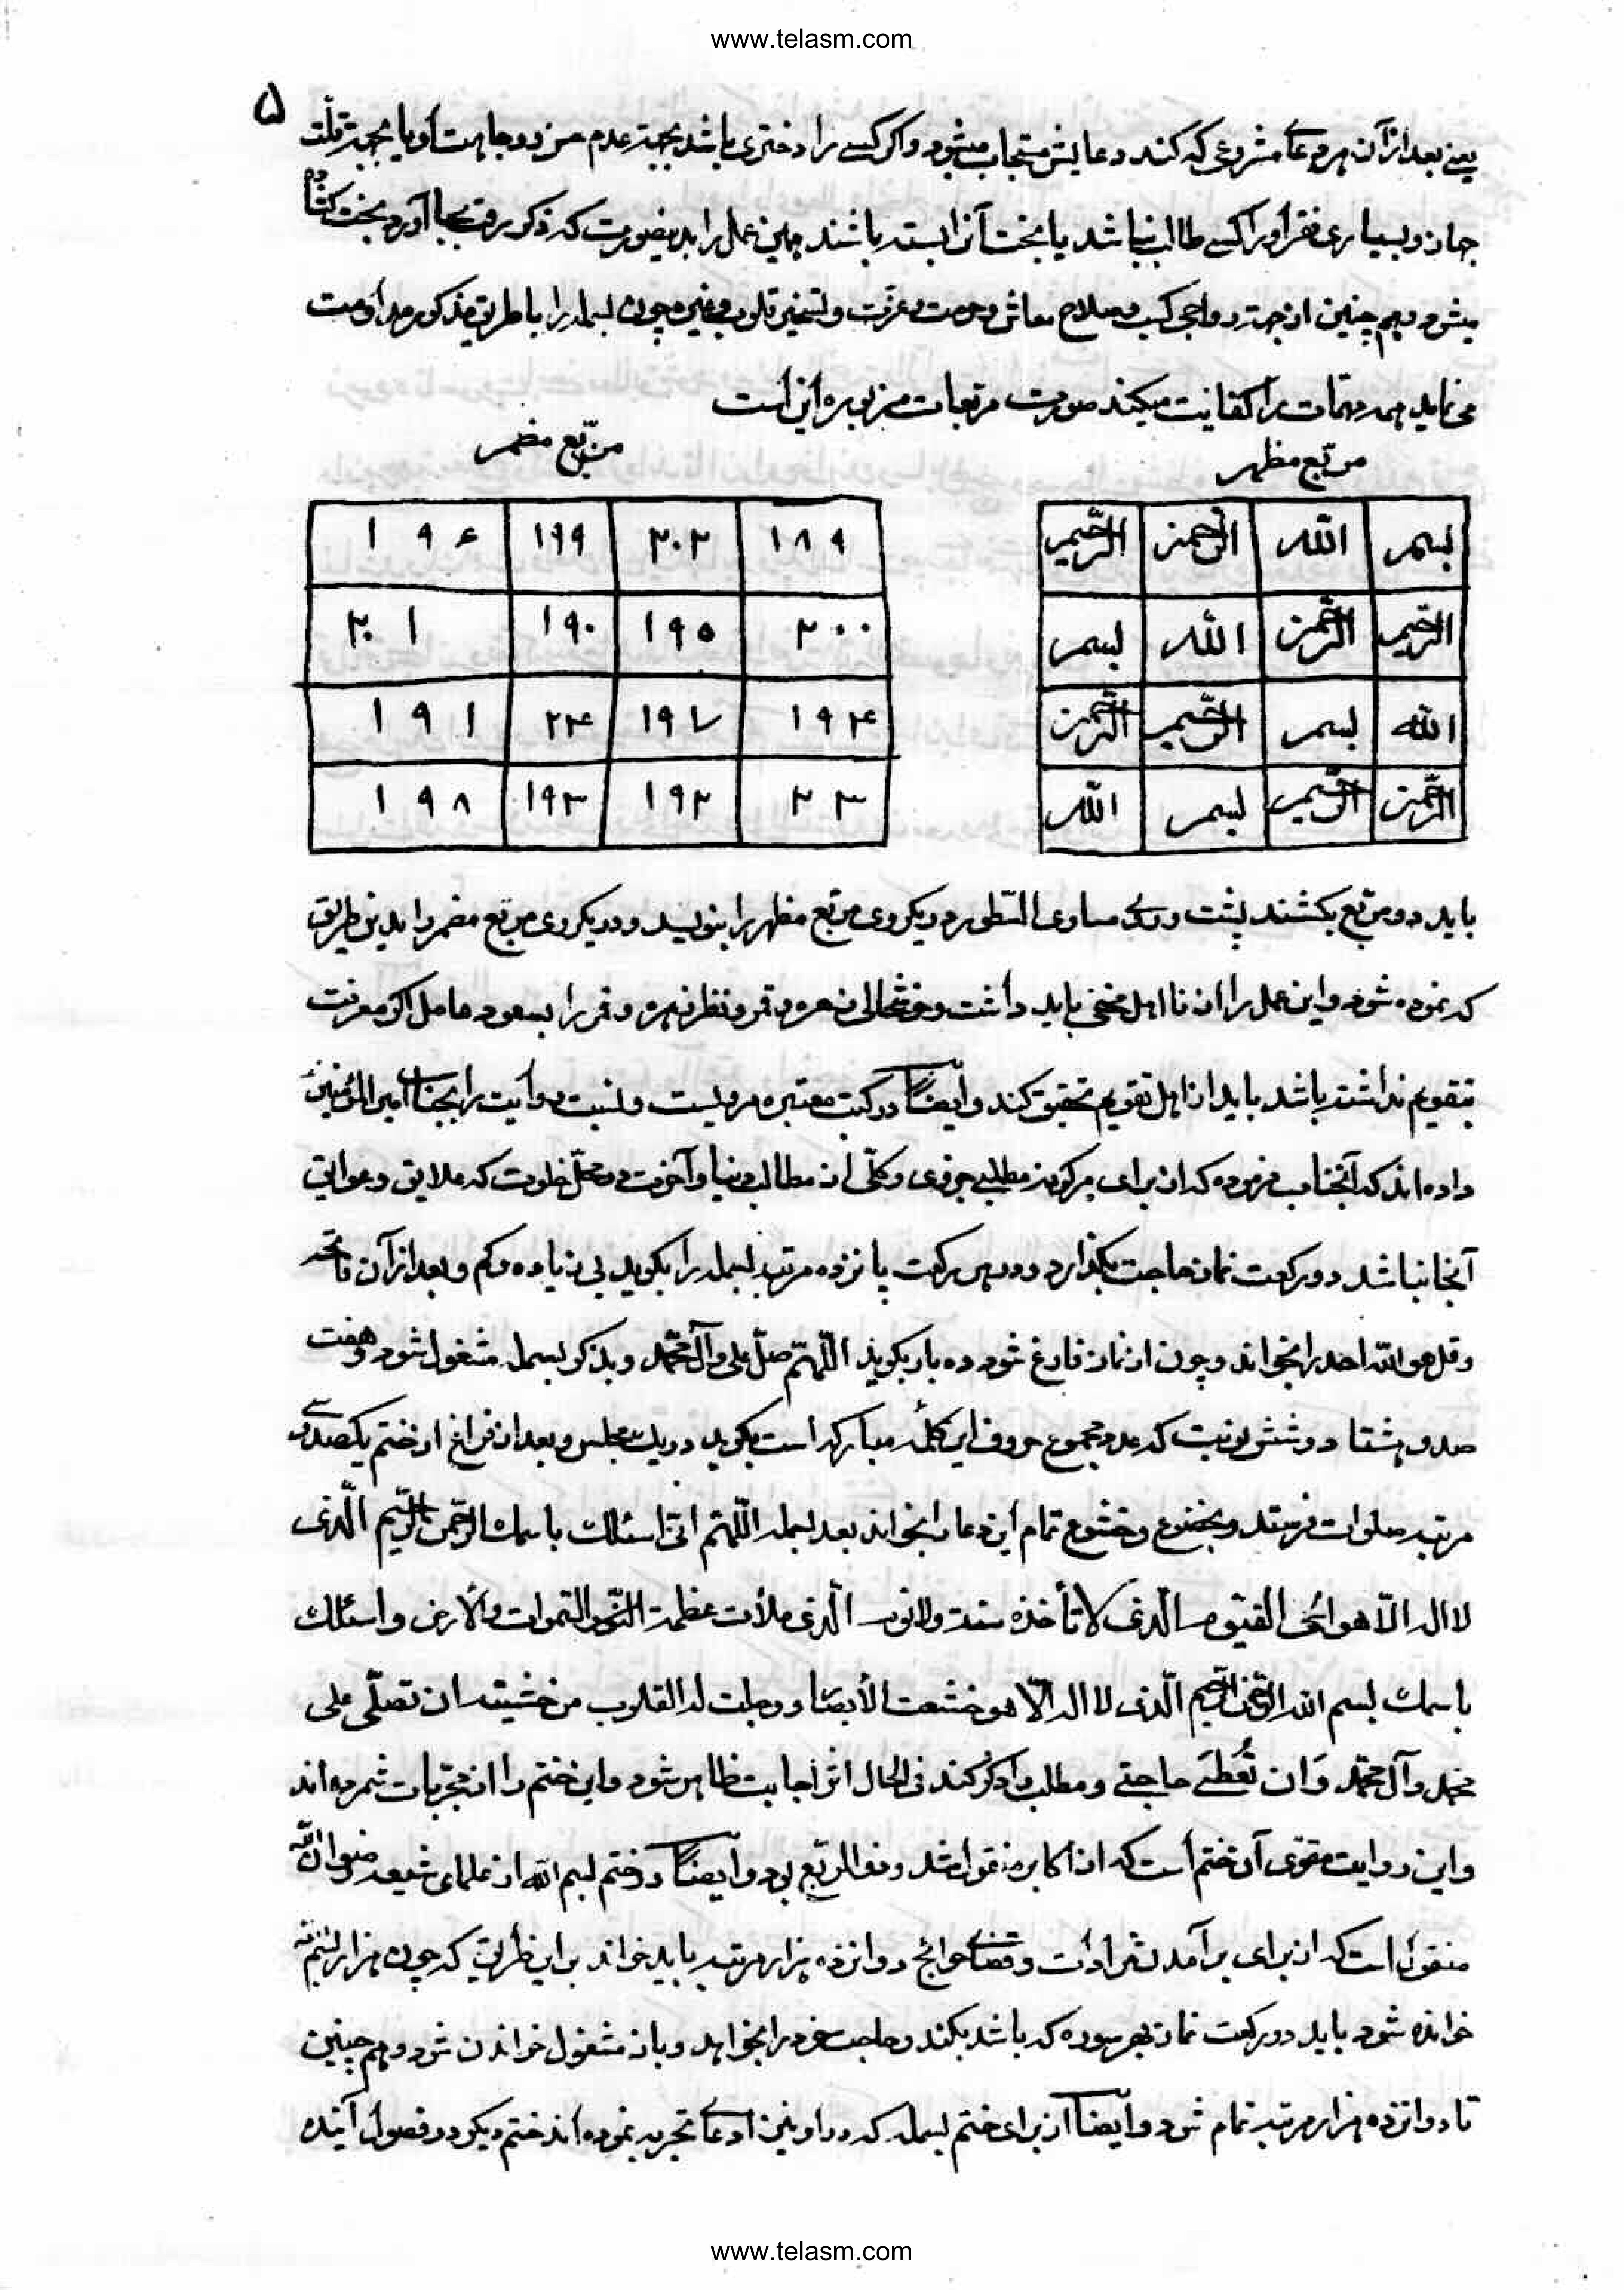 www.telasm.com
۵
یعنی بعد از آن هر دعای مشروعی که کند دعایش مستجاب میشود و اگر کسی را دختری باشد بجهة عدم حسن و وجاهت او یا بجهة قلّت
جهاز و بسیاری فقر او را کسی طالب نباشد یا بخت آنرا بسته باشند همین عمل را بدینصورت که ذکر رفت بجا آورد بخت گشاده
میشود و هم چنین از جهة رواجی کسب و صلاح معاش و حرمت و عزّت و تسخیر قلوب و غیره چون بسمله را با طریق مذکور مداومت
می نماید همه مهمّات را کفایت میکند صورت مربّعات مزبوره این است
مربّع مظهر
مربّع مضمر
بسم الله الرّحمن الرّحیم
الرّحیم الرّحمن الله بسم
الله بسم الرّحیم الرّحمن
الرّحمن الرّحیم بسم الله
۱۸۹ ۲۰۲ ۱۹۹ ۱۹۶
۲۰۰ ۱۹۵ ۱۹۰ ۲۰۱
۱۹۴ ۱۹۷ ۲۴ ۱۹۱
۲۳ ۱۹۲ ۱۹۳ ۱۹۸
باید دو مربّع بکشند پشت و روی مساوی السّطور در یکروی مربّع مظهر را بنویسند و در یکروی مربّع مضمر را بدین طریق
که نموده شود و این عمل را از نا اهل مخفی باید داشت و خوشحالی زهره و قمر و نظر زهره و قمر را بسعود عامل اگر معرفت
بتقویم نداشته باشد باید از اهل تقویم تحقیق کند و ایضاً در کتب معتبره مرویست و نسبت روایت را بجناب امیر المؤمنین
داده اند که آنجناب فرموده که از برای هر گونه مطلب جزوی و کلّی از مطالب دنیا و آخرت در محلّ خلوت که علایق و عوایق
آنجا نباشد دو رکعت نماز حاجت بگذارد و در هر رکعت پانزده مرتبه بسمله را بگوید بی زیاده و کم و بعد از آن فاتحه
و قل هو الله احد را بخواند و چون از نماز فارغ شود ده بار بگوید اللّهمّ صلّ علی و آل محمّد و بذکر بسمله مشغول شود و هفت
صد و هشتاد و شش نوبت که عدد مجموع حروف این کلمه مبارکه است بگوید در یک مجلس و بعد از فراغ از ختم یکصد و سی
مرتبه صلوات فرستد و بخضوع و خشوع تمام این دعا را بخواند بعد بسمله اللّهمّ انّی اسئلک باسمک الرّحمن الرّحیم الّذی
لا اله الّا هو الحیّ القیّوم الّذی لا تأخذه سنة ولا نوم الّذی ملأت عظمة السّموات والأرض و اسئلک
باسمک بسم الله الرّحمن الرّحیم الّذی لا اله الّا هو خشعت الأبصار و وجلت له القلوب من خشیته ان تصلّی علی
محمّد وآل محمّد وَان تُعطَی حاجتی و مطلب را ذکر کند فی الحال اثر اجابت ظاهر شود و این ختم را از مجرّبات شمرده اند
و این روایت مقوّی آن ختم است که از اکابر منقول شد و مع المربّع بود و ایضاً در ختم بسم الله از علمای شیعه رضوان الله
منقول است که از برای برآمدن مرادات و قضای حوائج دوازده هزار مرتبه باید خواند بر این طریق که چون هزار مرتبه
خوانده شود باید دو رکعت نماز بهر سوره که باشد بکند و حاجت خود را بخواهد و باز مشغول خواندن شود و هم چنین
تا دوازده هزار مرتبه تمام شود و ایضاً از برای ختم بسمله که در او نیز ادعای تجربه نموده اند ختم دیگر در فصول آینده
www.telasm.com